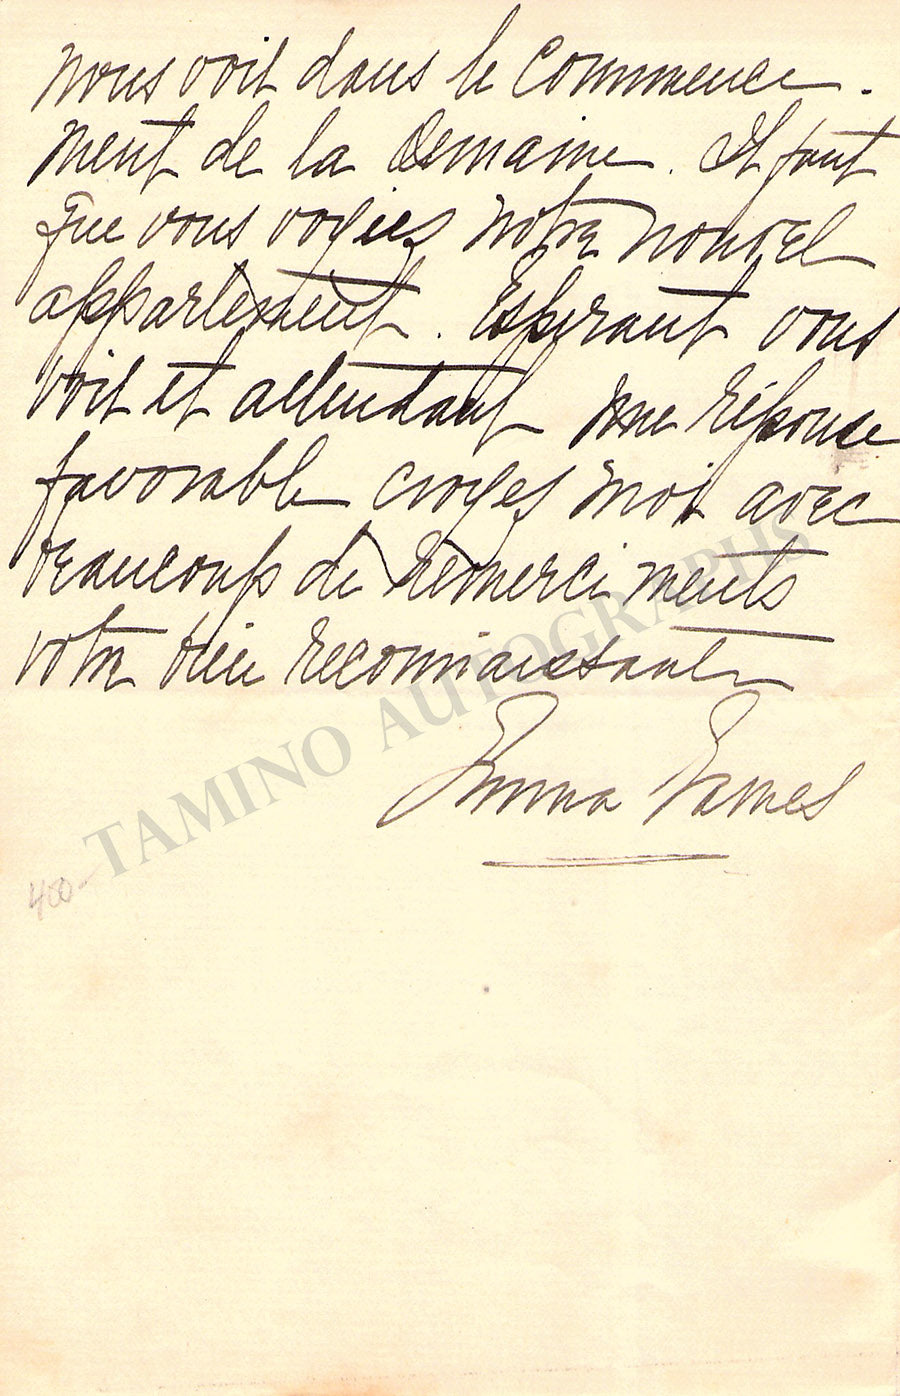 nous voir dans le commence-
ment de la semaine. Il faut
que vous voyiez notre nouvel
appartement. Espérant vous
voir et attendant une réponse
favorable croyez moi avec
beaucoup de remerciments
votre bien reconnaissante
Emma Eames
400-
TAMINO AUTOGRAPHS